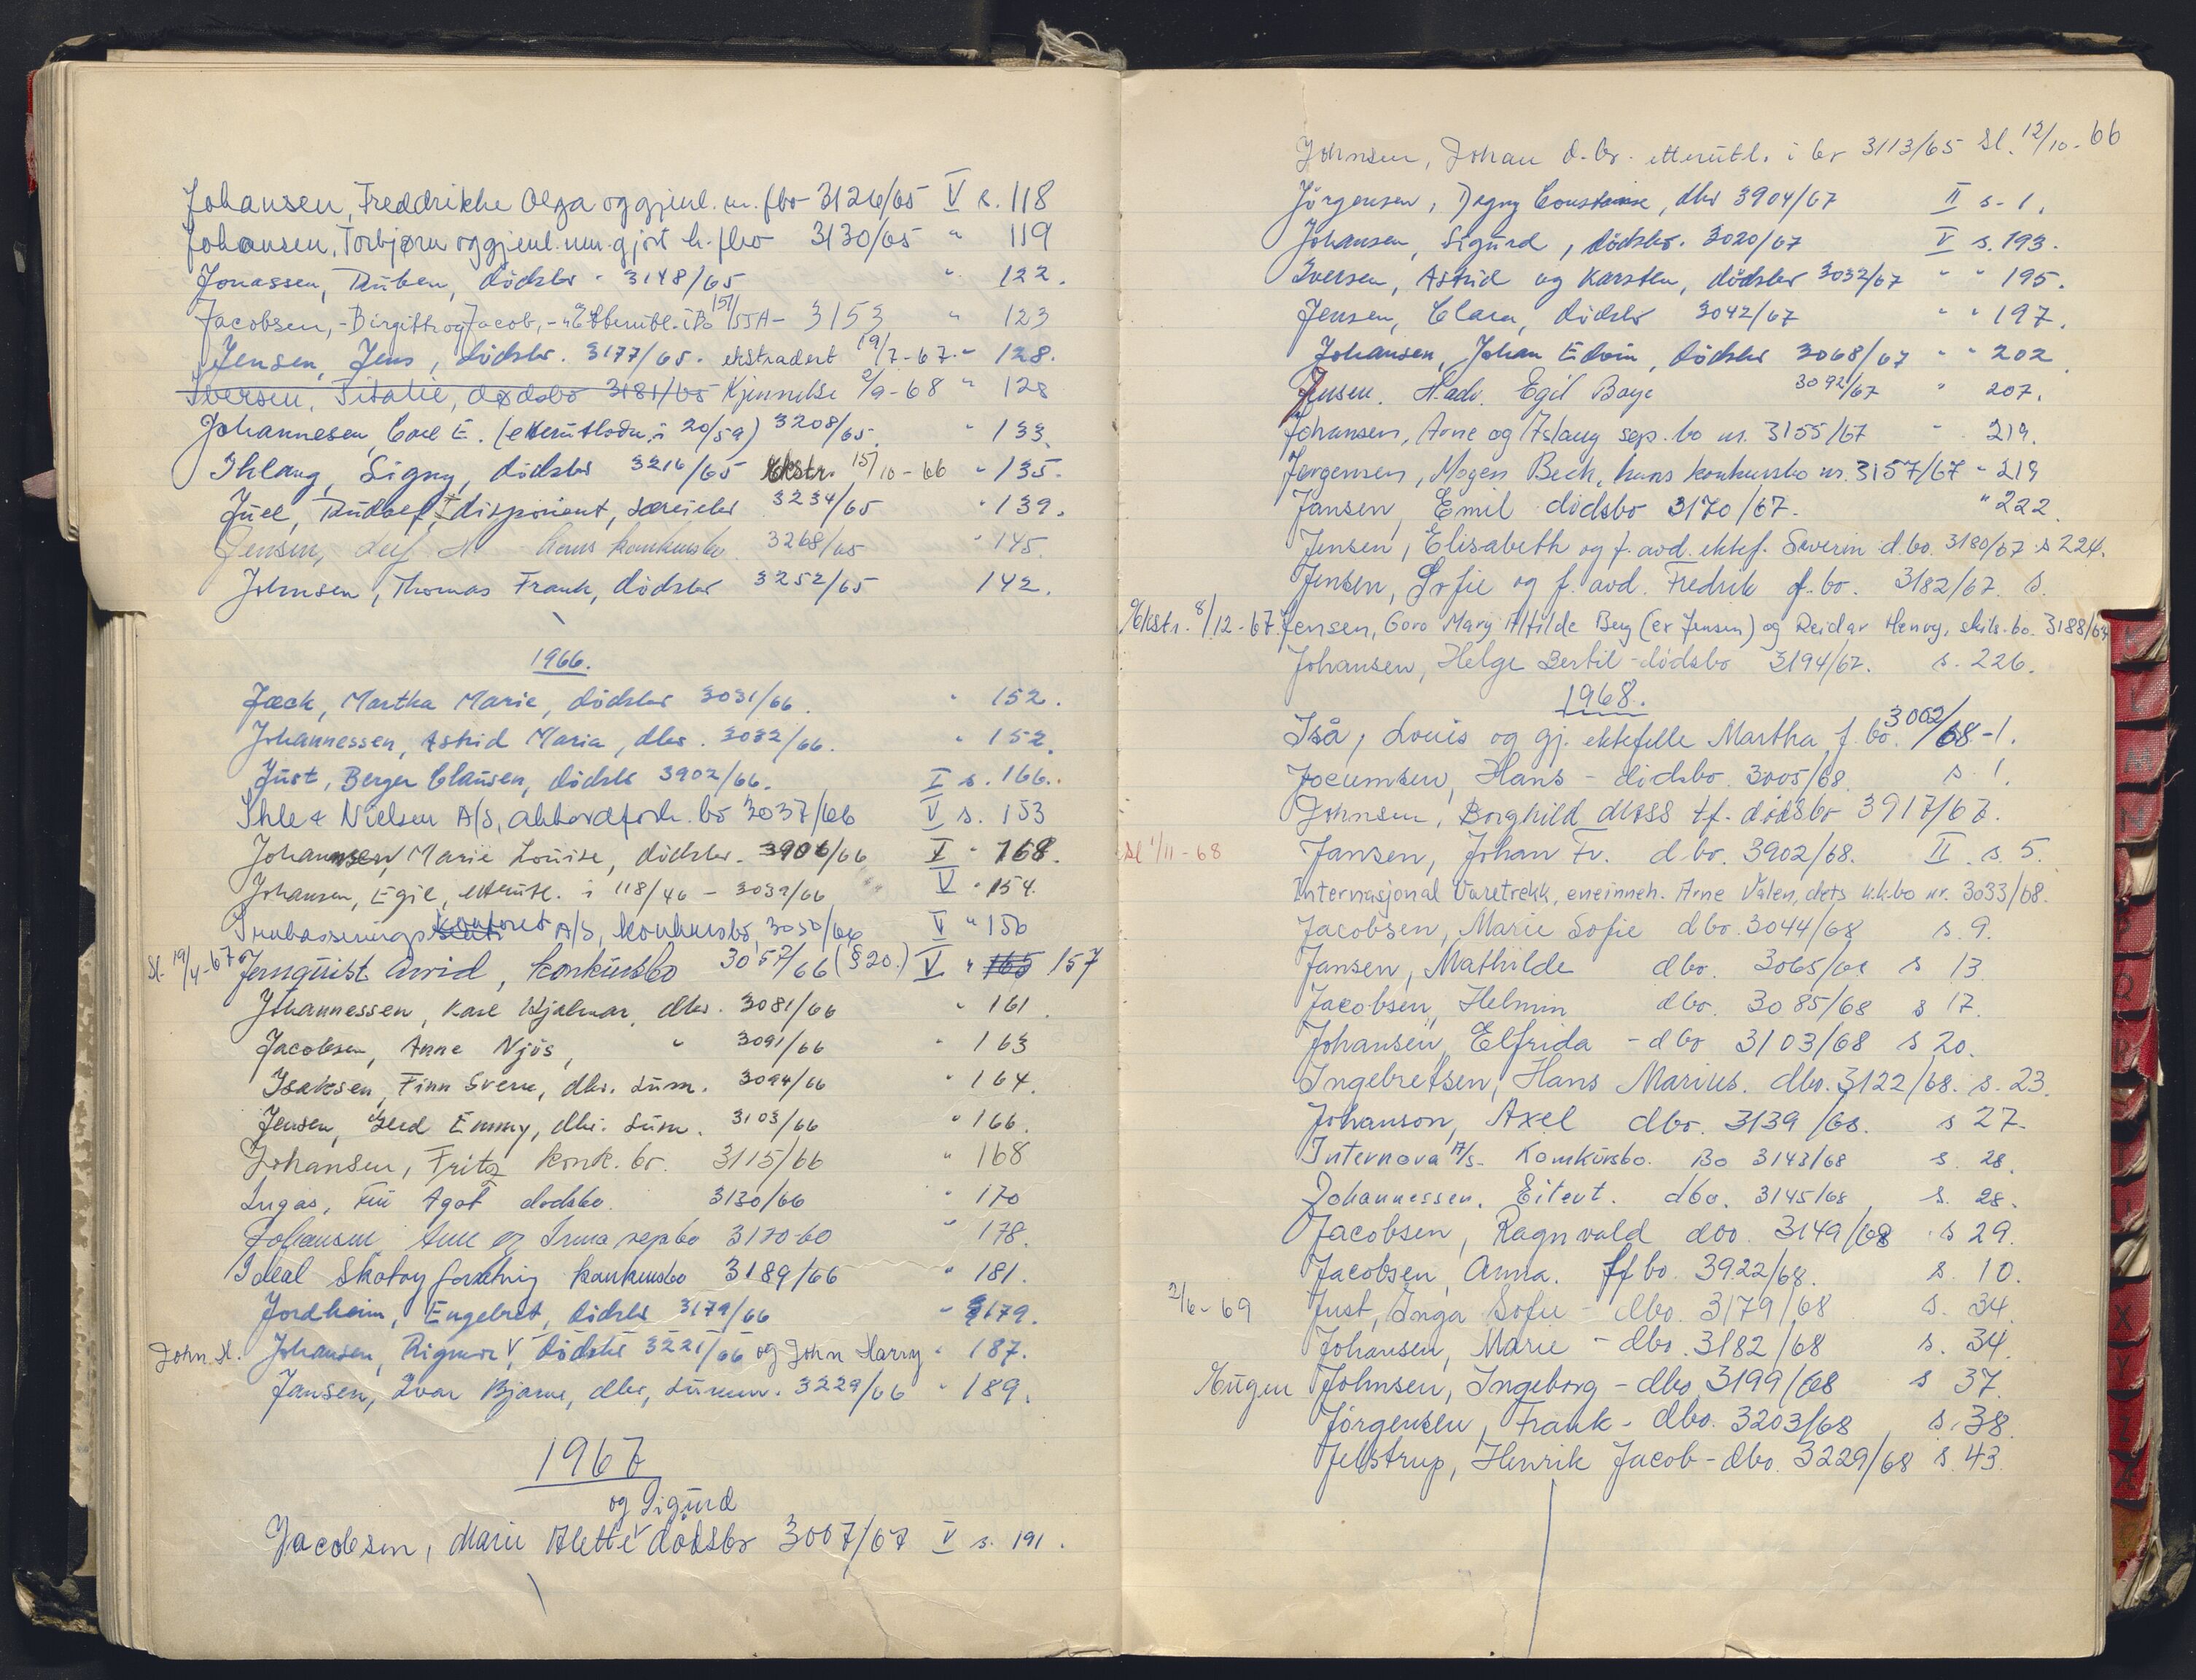 Johansen, Freddrikke Olga og gjenl. m. fbo 3126/65 V s. 118
Johansen, Torbjørn og gjenl. um. gjort h. fbo 3130/65 " 119
Jonassen, Ruben, dödsbo - 3148/65 " 122.
Jacobsen, - Birgitte og Jacob, - 3153 " 123
Jensen, Jens, dödsbo. 3177/65. ekstradert 19/7-67. " 128.
Iversen, Titalie, dødsbo 3181/65 Kjennelse 2/9-68 " 128
Johannesen, Carl E. (etterutlodn. i 20/59) 3208/65. " 133.
Ihlang, Signy, dödsbo 3216/65 Ekstr. 15/10-66 " 135.
Juel, Rudolf, disponent, særeiebo 3234/65 " 139.
Jensen, Leif H. hans konkursbo 3268/65 " 145.
Johnsen, Thomas Frank, dödsbo 3252/65 142.
1966.
Jack, Martha Marie, dödsbo 3031/66. " 152.
Johannessen, Astrid Maria, dbo. 3032/66. " 152.
Just, Berger Clausen, dödsbo 3902/66. I s. 166.
Ihle & Nielsen A/S, akkordforh. bo 3037/66 V s. 153
Johannsen, Marie Louise, dödsbo. 3906/66 I " 168.
Johansen, Egil, etterutl. i 118/46 - 3039/66 V " 154.
Inkasserings kontoret A/S, konkursbo, 3050/66 V " 156
Sl. 19/4-67 Jernquist Arvid, konkursbo 3057/66 (§20.) V " 165 157
Johannessen, Karl Hjalmar, dbo. 3081/66 " 161.
Jacobsen, Anne Njös, " 3091/66 " 163
Isaksen, Finn Sverre, dbo. sum. 3094/66 " 164.
Jensen, Gerd Emmy, dbo. sum. 3103/66 " 166.
Johansen, Fritz konk. bo. 3115/66 " 168
Agot dødsbo. 3130/66 " 170
Johansen og Irma sepbo 3170-60 " 178.
Ideal Skotøyforretning konkursbo 3189/66 " 181.
Jordheim, Engebret, dödsbo 3179/66 " 179.
John H. Johansen, Rigmor V, dödsbo 3221/66 og John Harry " 187.
Jansen, Ivar Bjarne, dbo, summ. 3229/66 " 189.
1967
og Sigurd
Jacobsen, Marie Alette dödsbo 3007/67 V s. 191.
Johnsen, Johan d.bo. etterutl. i bo 3113/65 Sl. 12/10-66
Jörgensen, Dagny Constanse, dbo 3904/67 II s. 1.
Johansen, Sigurd, dödsbo. 3020/67 V s. 193.
Iversen, Astrid og Karsten, dödsbo 3032/67 " " 195.
Jensen, Clara, dödsbo 3042/67 " " 197.
Johansen, Johan Edvin, dödsbo 3068/67 " " 202
Jensen. H.adv. Egil Boye 3092/67 " 207.
Johansen, Arne og Aslaug sep. bo nr. 3155/67 " 219.
Jørgensen, Mogen Beck, hans konkursbo nr. 3157/67 " 219
Jansen, Emil dödsbo 3170/67. " 222.
Jensen, Elisabeth og f. avd. ektef. Severin d.bo. 3180/67 s 224.
Jensen, Sofie og f. avd. Fredrik f. bo. 3182/67. s.
Ekstr. 8/12-67. Jensen, Goro Mary Alfilde Berg (ex Jensen) og Reidar Henry, skils. bo. 3188/67
Johansen, Helge Bertil - dödsbo 3194/67. s. 226.
1968.
Iså, Louis og gj. ektefelle Martha f. bo. 3002/68 - 1.
Jocumsen, Hans - dödsbo. 3005/68. s. 1.
Johnsen, Borghild Moss tf. dödsbo 3917/67.
Sl 1/11-68 Jansen, Johan Fr. d.bo. 3902/68. II. s. 5.
Internasjonal Varetrekk, eneinneh. Arne Valen, dets k.k.bo nr. 3033/68.
Jacobsen, Marie Sofie dbo. 3044/68 s. 9.
Jansen, Mathilde dbo. 3065/68 s 13.
Jacobsen, Helmin dbo. 3085/68 s 17.
Johansen, Elfrida - dbo 3103/68 s 20.
Ingebretsen, Hans Marius. dbo. 3122/68. s. 23.
Johanson, Axel dbo. 3139/68. s 27.
Internova A/S - Konkursbo. Bo 3143/68 s. 28.
Johannessen, Eitevt. dbo. 3145/68 s. 28.
Jacobsen, Ragnvald dbo. 3149/68 s 29.
Jacobsen, Anna. ff bo. 3922/68. s. 10.
2/6-69 Just, Inga Sofie - dbo. 3179/68 s. 34.
Johansen, Marie - dbo. 3182/68 s. 34.
Eugen Johnsen, Ingeborg - dbo 3199/68 s 37.
Jörgensen, Frank - dbo. 3203/68 s. 38.
Jelstrup, Henrik Jacob - dbo. 3229/68 s. 43.